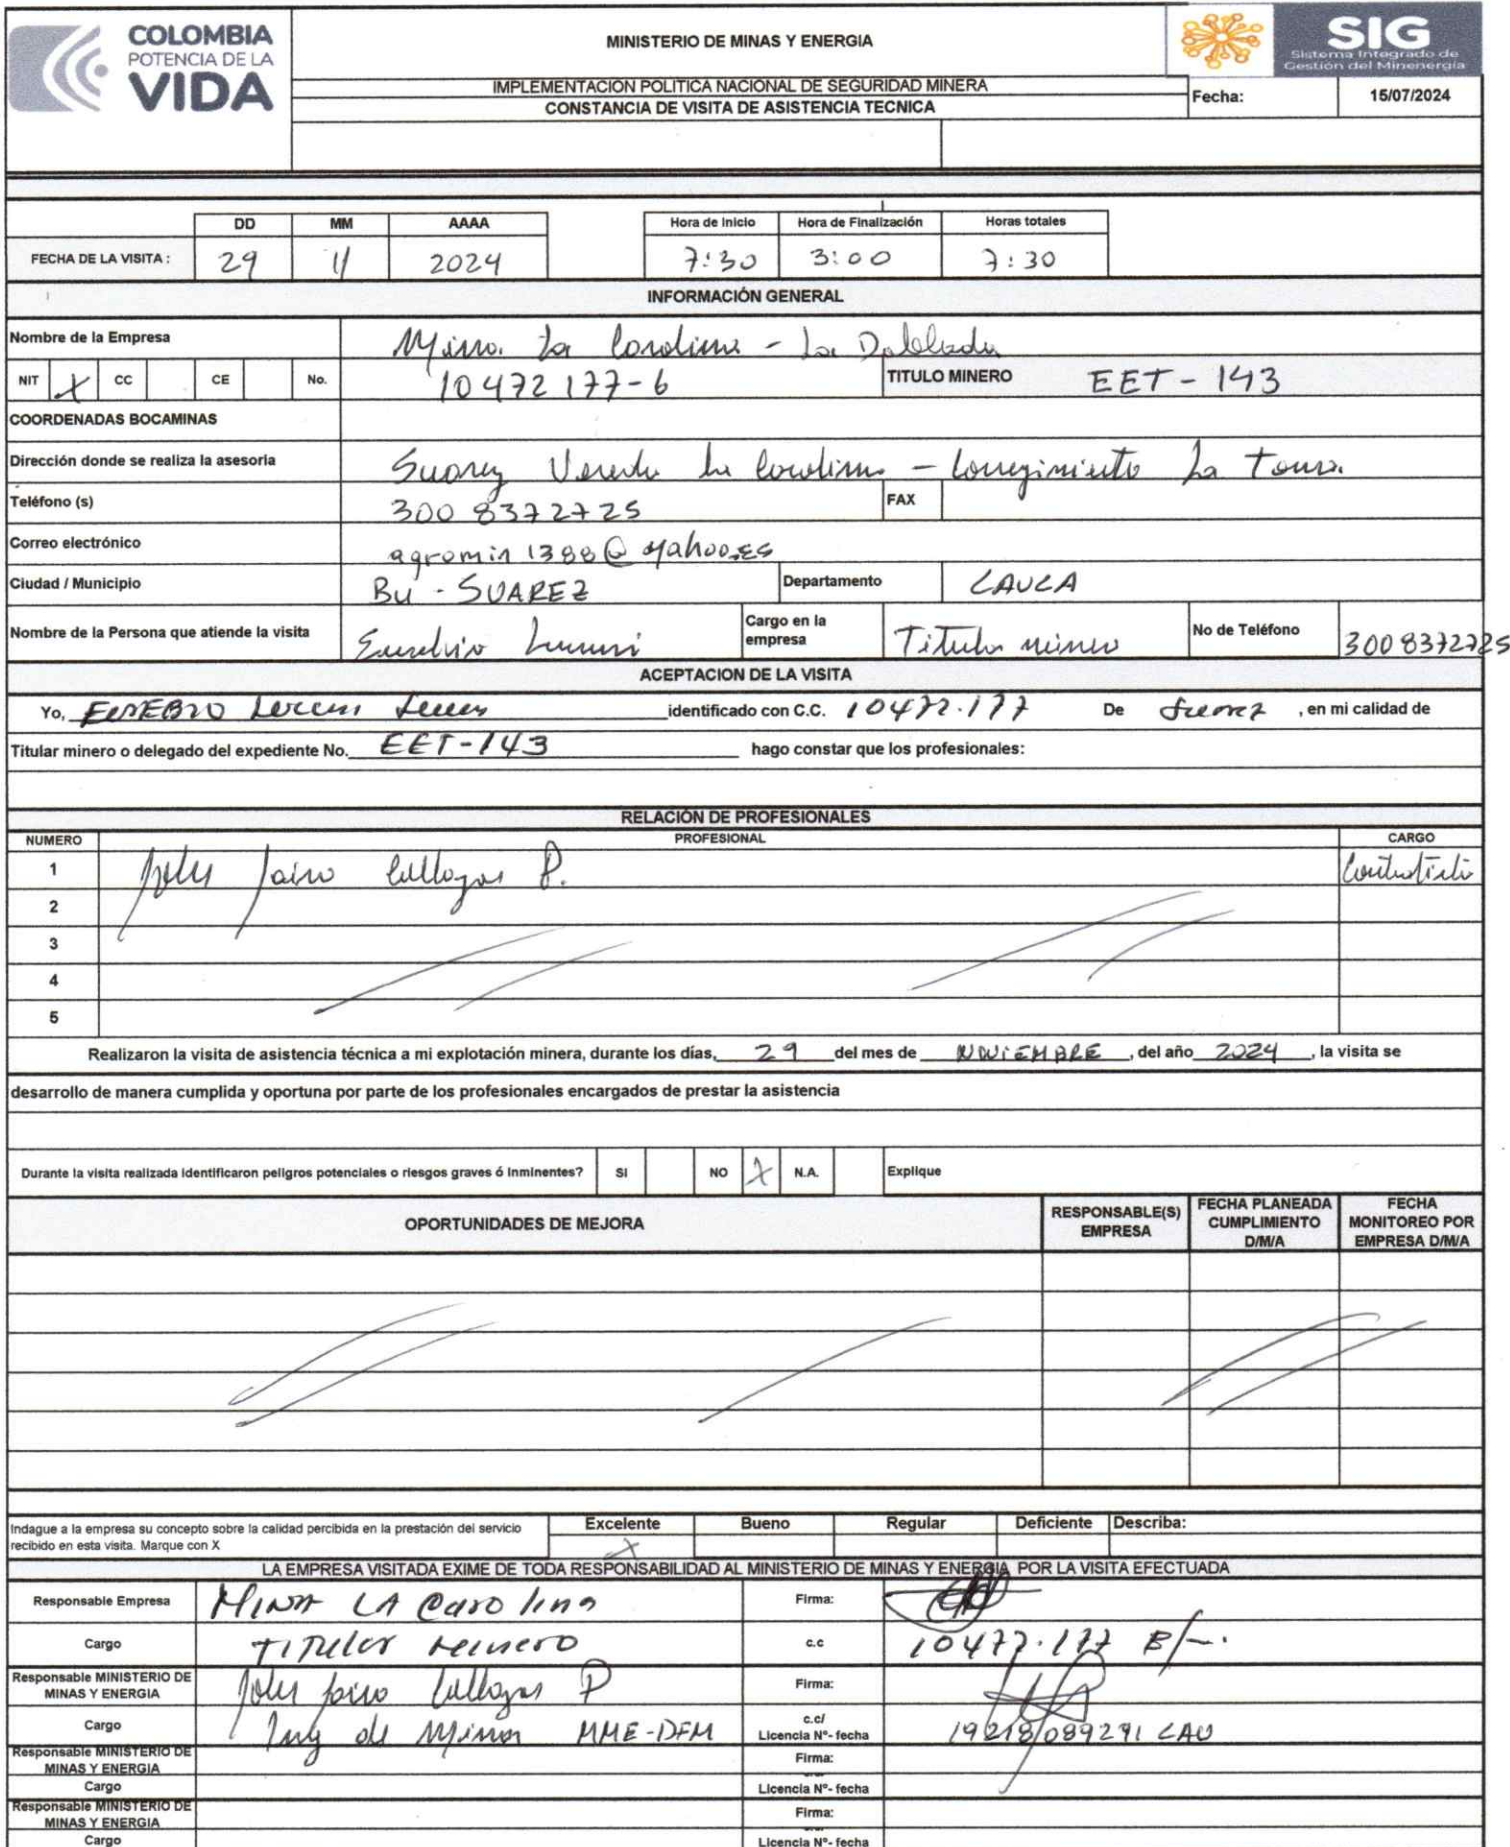 COLOMBIA
POTENCIA DE LA
VIDA
MINISTERIO DE MINAS Y ENERGIA
SIG
Sistema Integrado de
Gestión del Minenergía
IMPLEMENTACION POLITICA NACIONAL DE SEGURIDAD MINERA
CONSTANCIA DE VISITA DE ASISTENCIA TECNICA
Fecha: 15/07/2024
DD MM AAAA Hora de Inicio Hora de Finalización Horas totales
FECHA DE LA VISITA : 29 11 2024 7:30 3:00 7:30
INFORMACIÓN GENERAL
Nombre de la Empresa Mina La Carolina - La
NIT X CC CE No. 10472177-6 TITULO MINERO EET-143
COORDENADAS BOCAMINAS
Dirección donde se realiza la asesoria Suarez Vereda La Carolina - Corregimiento La Toma
Teléfono (s) 300 8372725 FAX
Correo electrónico agromin1388@yahoo.es
Ciudad / Municipio SUAREZ Departamento CAUCA
Nombre de la Persona que atiende la visita Eusebio Cargo en la empresa Titular minero No de Teléfono 3008372725
ACEPTACION DE LA VISITA
Yo, EUSEBIO identificado con C.C. 10472.177 De Suarez , en mi calidad de
Titular minero o delegado del expediente No. EET-143 hago constar que los profesionales:
RELACIÓN DE PROFESIONALES
NUMERO PROFESIONAL CARGO
1 Jairo Callogas P. Contratista
2
3
4
5
Realizaron la visita de asistencia técnica a mi explotación minera, durante los días, 29 del mes de NOVIEMBRE , del año 2024 , la visita se
desarrollo de manera cumplida y oportuna por parte de los profesionales encargados de prestar la asistencia
Durante la visita realizada identificaron peligros potenciales o riesgos graves ó inminentes? SI NO X N.A. Explique
OPORTUNIDADES DE MEJORA RESPONSABLE(S) EMPRESA FECHA PLANEADA CUMPLIMIENTO D/M/A FECHA MONITOREO POR EMPRESA D/M/A
Indague a la empresa su concepto sobre la calidad percibida en la prestación del servicio Excelente Bueno Regular Deficiente Describa:
recibido en esta visita. Marque con X X
LA EMPRESA VISITADA EXIME DE TODA RESPONSABILIDAD AL MINISTERIO DE MINAS Y ENERGIA POR LA VISITA EFECTUADA
Responsable Empresa MINA LA Carolina Firma:
Cargo TITULAR minero c.c 10472.177
Responsable MINISTERIO DE MINAS Y ENERGIA Jairo Callogas P Firma:
Cargo Ing de Minas MME-DFM c.c/ Licencia Nº- fecha 19218/089291 CAU
Responsable MINISTERIO DE MINAS Y ENERGIA Firma:
Cargo Licencia Nº- fecha
Responsable MINISTERIO DE MINAS Y ENERGIA Firma:
Cargo Licencia Nº- fecha